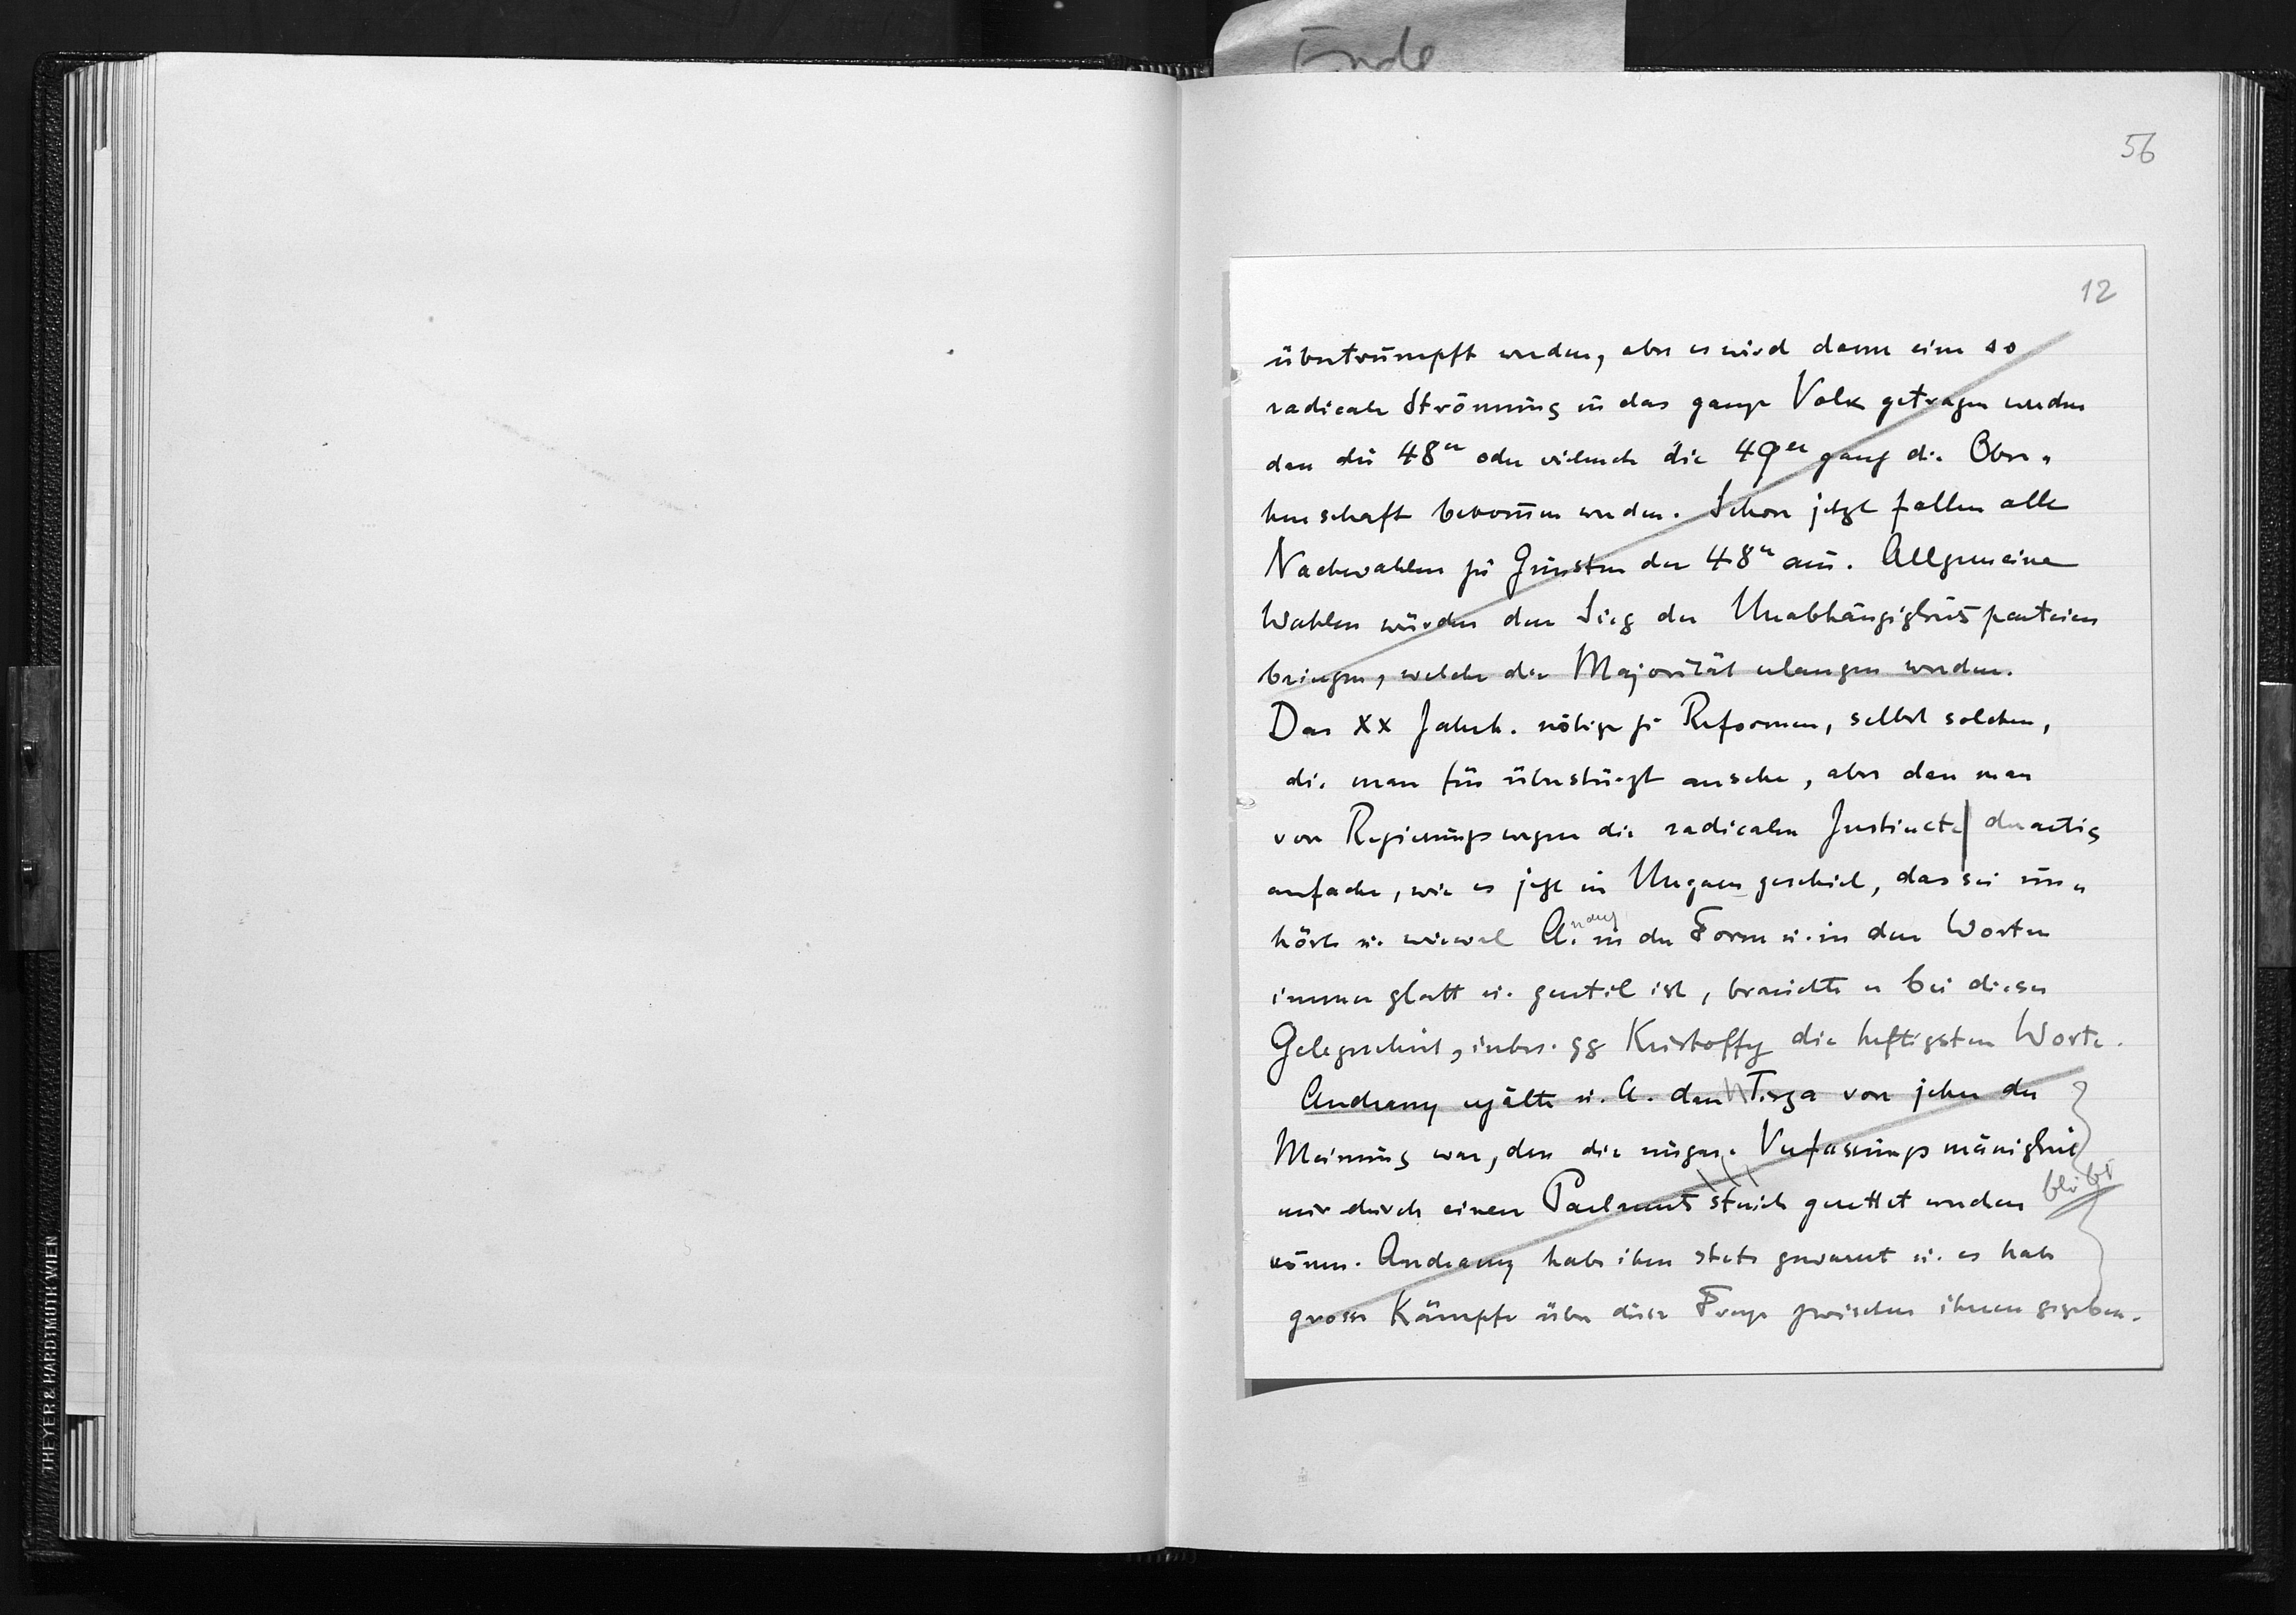 Ende
56
12
übertrumpft werden, aber es wird dann eine so
radicale Strömung in das ganze Volk getragen werden
dass die 48er oder vielmehr die 49er ganz die Ober-
herrschaft bekommen werden. Schon jetzt fallen alle
Nachwahlen zu Gunsten der 48er aus. Allgemeine
Wahlen würden den Sieg der Unabhängigkeitsparteien
bringen, welche die Majorität erlangen werden.
Das XX Jahrh. nötige zu Reformen, selbst solchen,
die man für überstürzt ansehe, aber dass man
von Regierungswegen die radicalen Instincte derartig
anfache, wie es jetzt in Ungarn geschieht, das sei un-
hört u. wiewol A.ndrássy in der Form u. in den Worten
immer glatt u. gentil ist, brauchte er bei dieser
Gelegenheit, insbes. gg Kristoffy die heftigsten Worte.
Andrassy erzälte u. A. dass Tisza von jeher der
Meinung war, dass die ungar. Verfassungsmässigkeit
nur durch einen Parlamentsstreich gerettet werden bleibt
könne. Andrassy habe ihn stets gewarnt u. es habe
grosse Kämpfe über diese Frage zwischen ihnen gegeben.
THEYER & HARDTMUTH WIEN